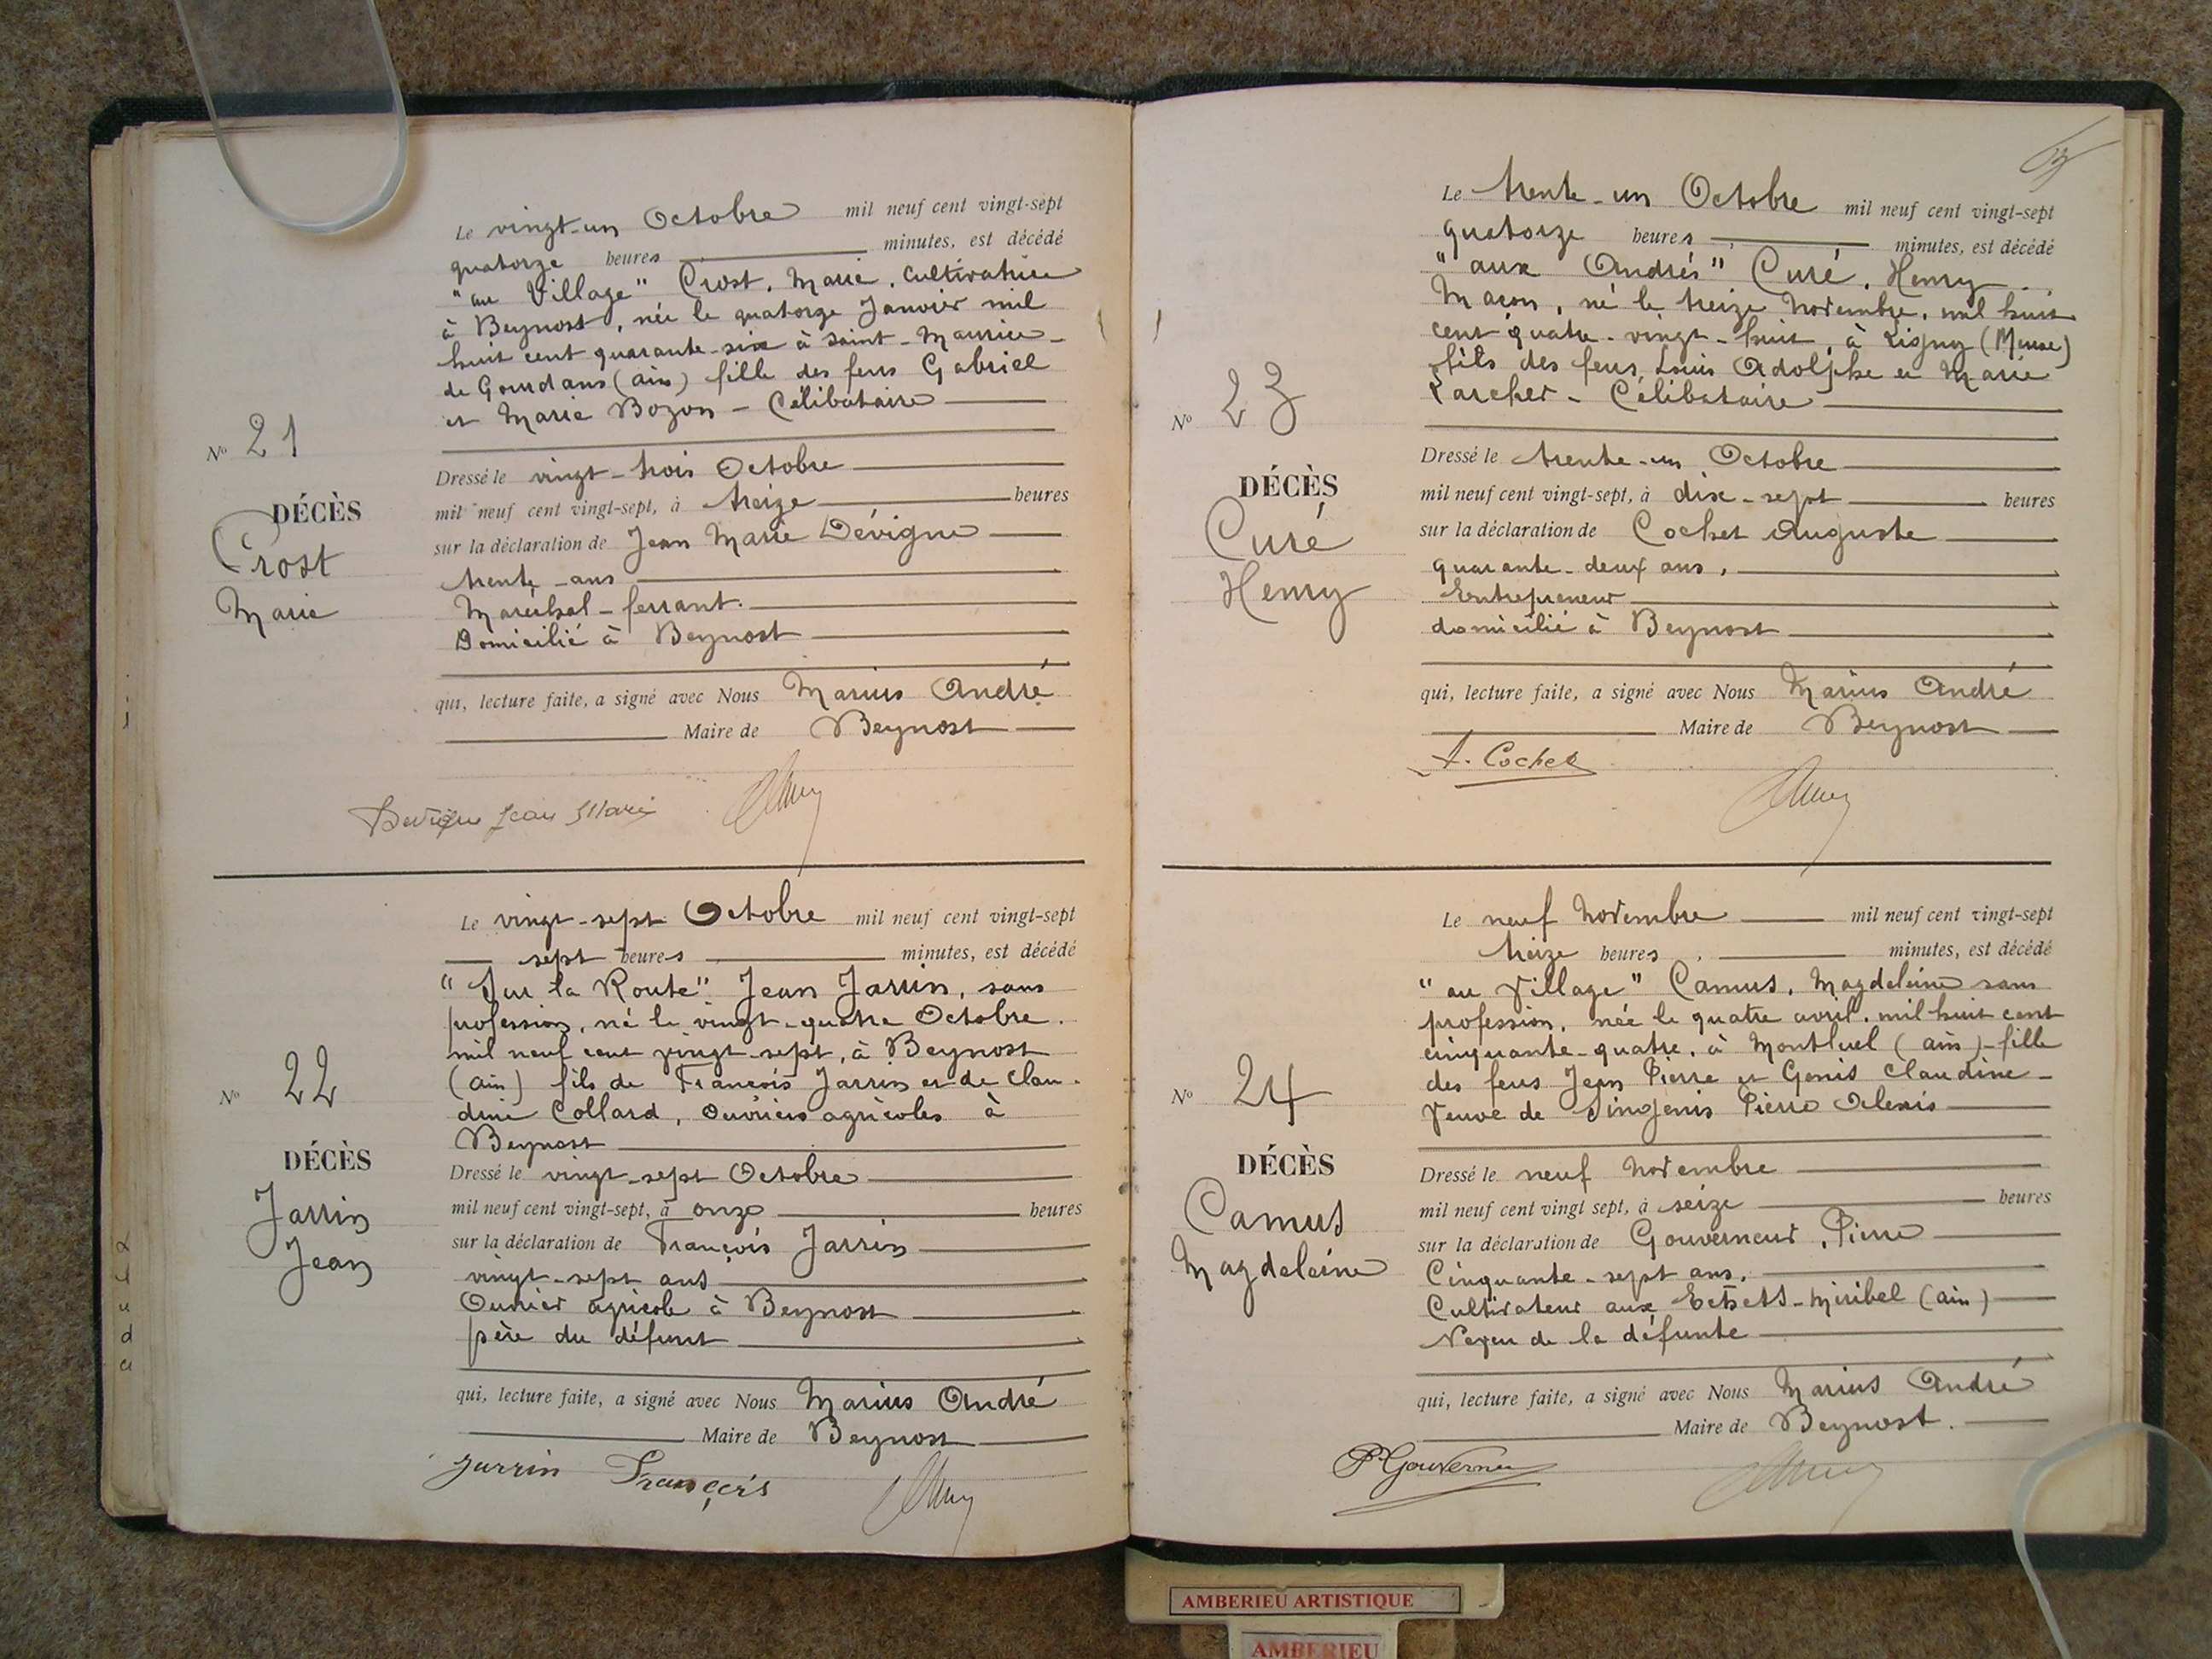 Le vingt-un Octobre mil neuf cent vingt-sept
quatorze heures minutes, est décédé
"au Village" Crost, Marie, Cultivatrice
à Beynost, née le quatorze Janvier mil
huit cent quarante-six à Saint-Maurice-
de Gourdans (ain) fille des feus Gabriel
et Marie Bozon - Célibataire
No 21
DÉCÈS
Crost
Marie
Dressé le vingt-trois Octobre
mil neuf cent vingt-sept, à treize heures
sur la déclaration de Jean Marie Dévigne
trente-ans
Maréchal-ferrant.
Domicilié à Beynost
qui, lecture faite, a signé avec Nous Marius André
Maire de Beynost
Devigne Jean Marie
Le vingt-sept Octobre mil neuf cent vingt-sept
sept heures minutes, est décédé
"Sur la Route" Jean Jarrin, sans
profession, né le vingt-quatre Octobre
mil neuf cent vingt-sept, à Beynost
(ain) fils de François Jarrin et de Clau-
dine Collard, ouvriers agricoles à
Beynost
No 22
DÉCÈS
Jarrin
Jean
Dressé le vingt-sept Octobre
mil neuf cent vingt-sept, à onze heures
sur la déclaration de François Jarrin
vingt-sept ans
Ouvrier agricole à Beynost
père du défunt
qui, lecture faite, a signé avec Nous Marius André
Maire de Beynost
Jarrin François
Le trente-un Octobre mil neuf cent vingt-sept
quatorze heures minutes, est décédé
"aux Andrés" Curé, Henry
Maçon, né le treize Novembre, mil huit
cent quatre-vingt-huit, à Ligny (Meuse)
fils des feus Louis Adolphe et Marie
Larcher - Célibataire
No 23
DÉCÈS
Curé
Henry
Dressé le trente-un Octobre
mil neuf cent vingt-sept, à dix-sept heures
sur la déclaration de Cochet Auguste
quarante-deux ans,
Entrepreneur
domicilié à Beynost
qui, lecture faite, a signé avec Nous Marius André
Maire de Beynost
A. Cochet
Le neuf Novembre mil neuf cent vingt-sept
treize heures minutes, est décédé
"au Village" Camus, Magdeleine sans
profession, née le quatre avril, mil huit cent
cinquante-quatre, à Montluel (ain) - fille
des feus Jean Pierre et Genis Claudine -
Veuve de Pierre Alexis
No 24
DÉCÈS
Camus
Magdeleine
Dressé le neuf Novembre
mil neuf cent vingt sept, à seize heures
sur la déclaration de Gouverneur, Pierre
Cinquante-sept ans,
Cultivateur aux Echets-Miribel (ain)
Neveu de la défunte
qui, lecture faite, a signé avec Nous Marius André
Maire de Beynost.
P. Gouverneur
AMBERIEU ARTISTIQUE
AMBERIEU